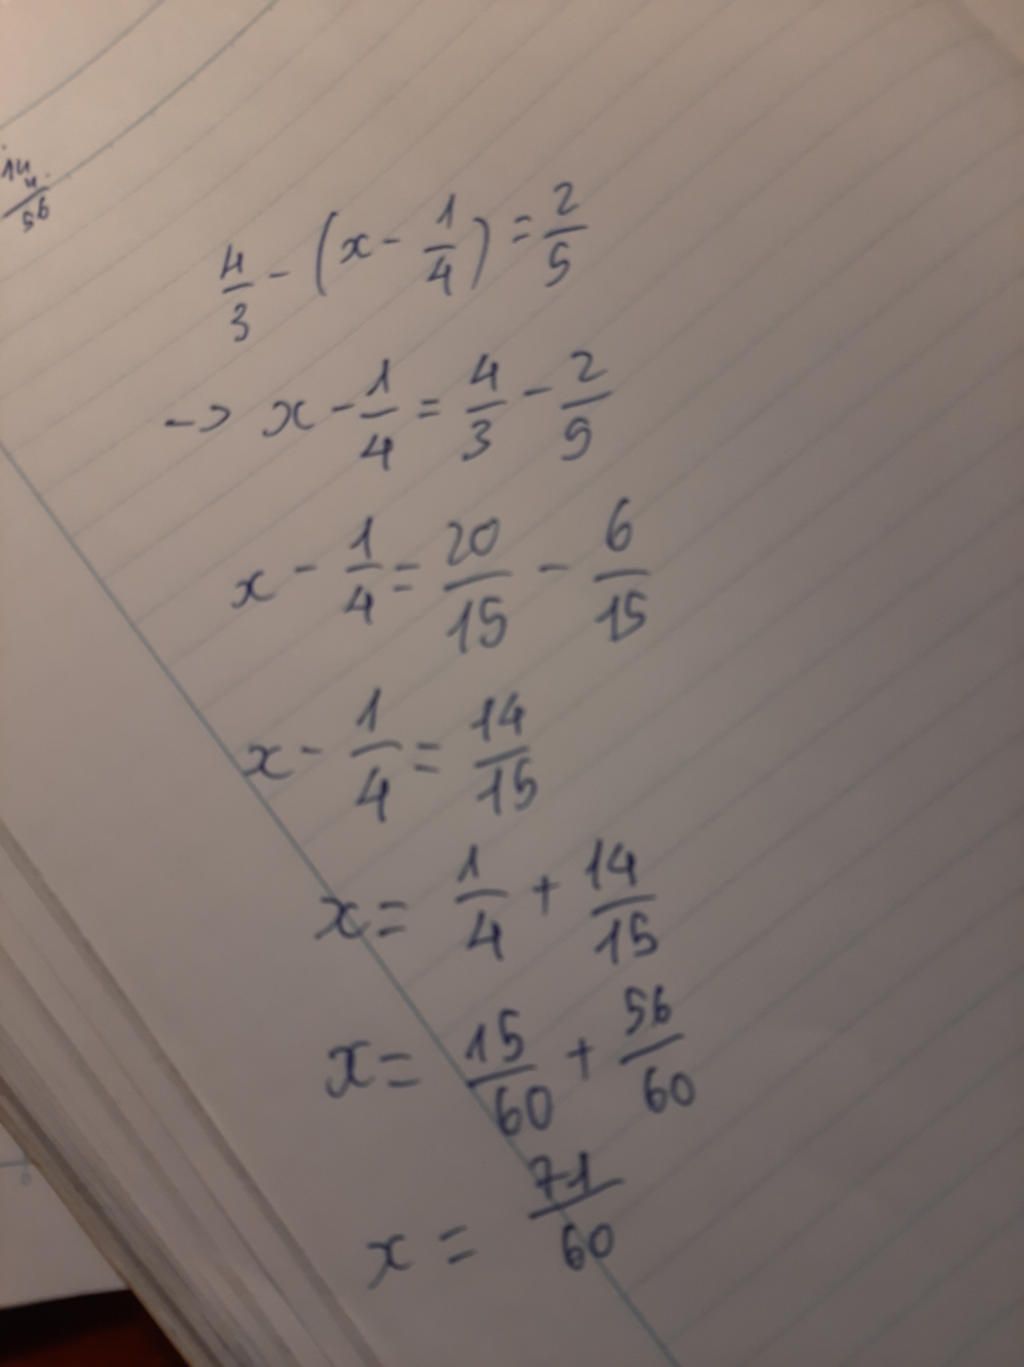 14
4
56
4/3 - (x - 1/4) = 2/5
-> x - 1/4 = 4/3 - 2/5
x - 1/4 = 20/15 - 6/15
x - 1/4 = 14/15
x = 1/4 + 14/15
x = 15/60 + 56/60
x = 71/60